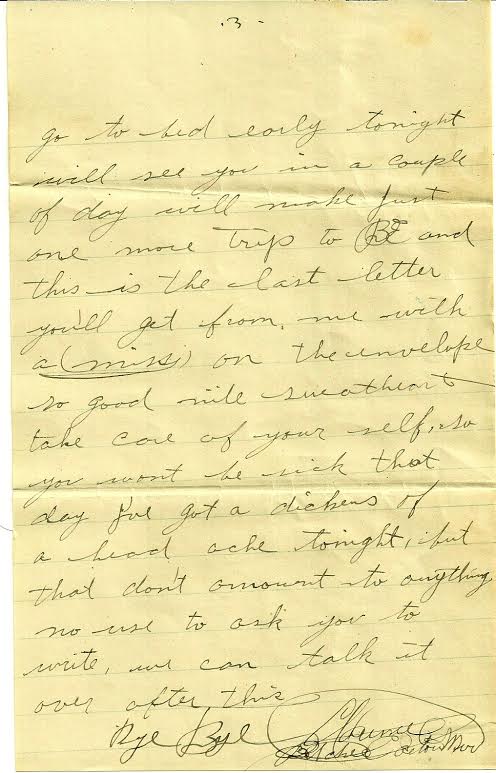 . 3 -
go to bed early tonight
will see you in a couple
of day will make just
one more trip to and
this is the last letter
you'll get from, me with
a (miss) on the envelope
so good nite sweatheart
take care of your self, so
you wont be sick that
day I've got a dickens of
a head ache tonight, but
that don't amount to anything
no use to ask you to
write, we can talk it
over after this
Bye Bye